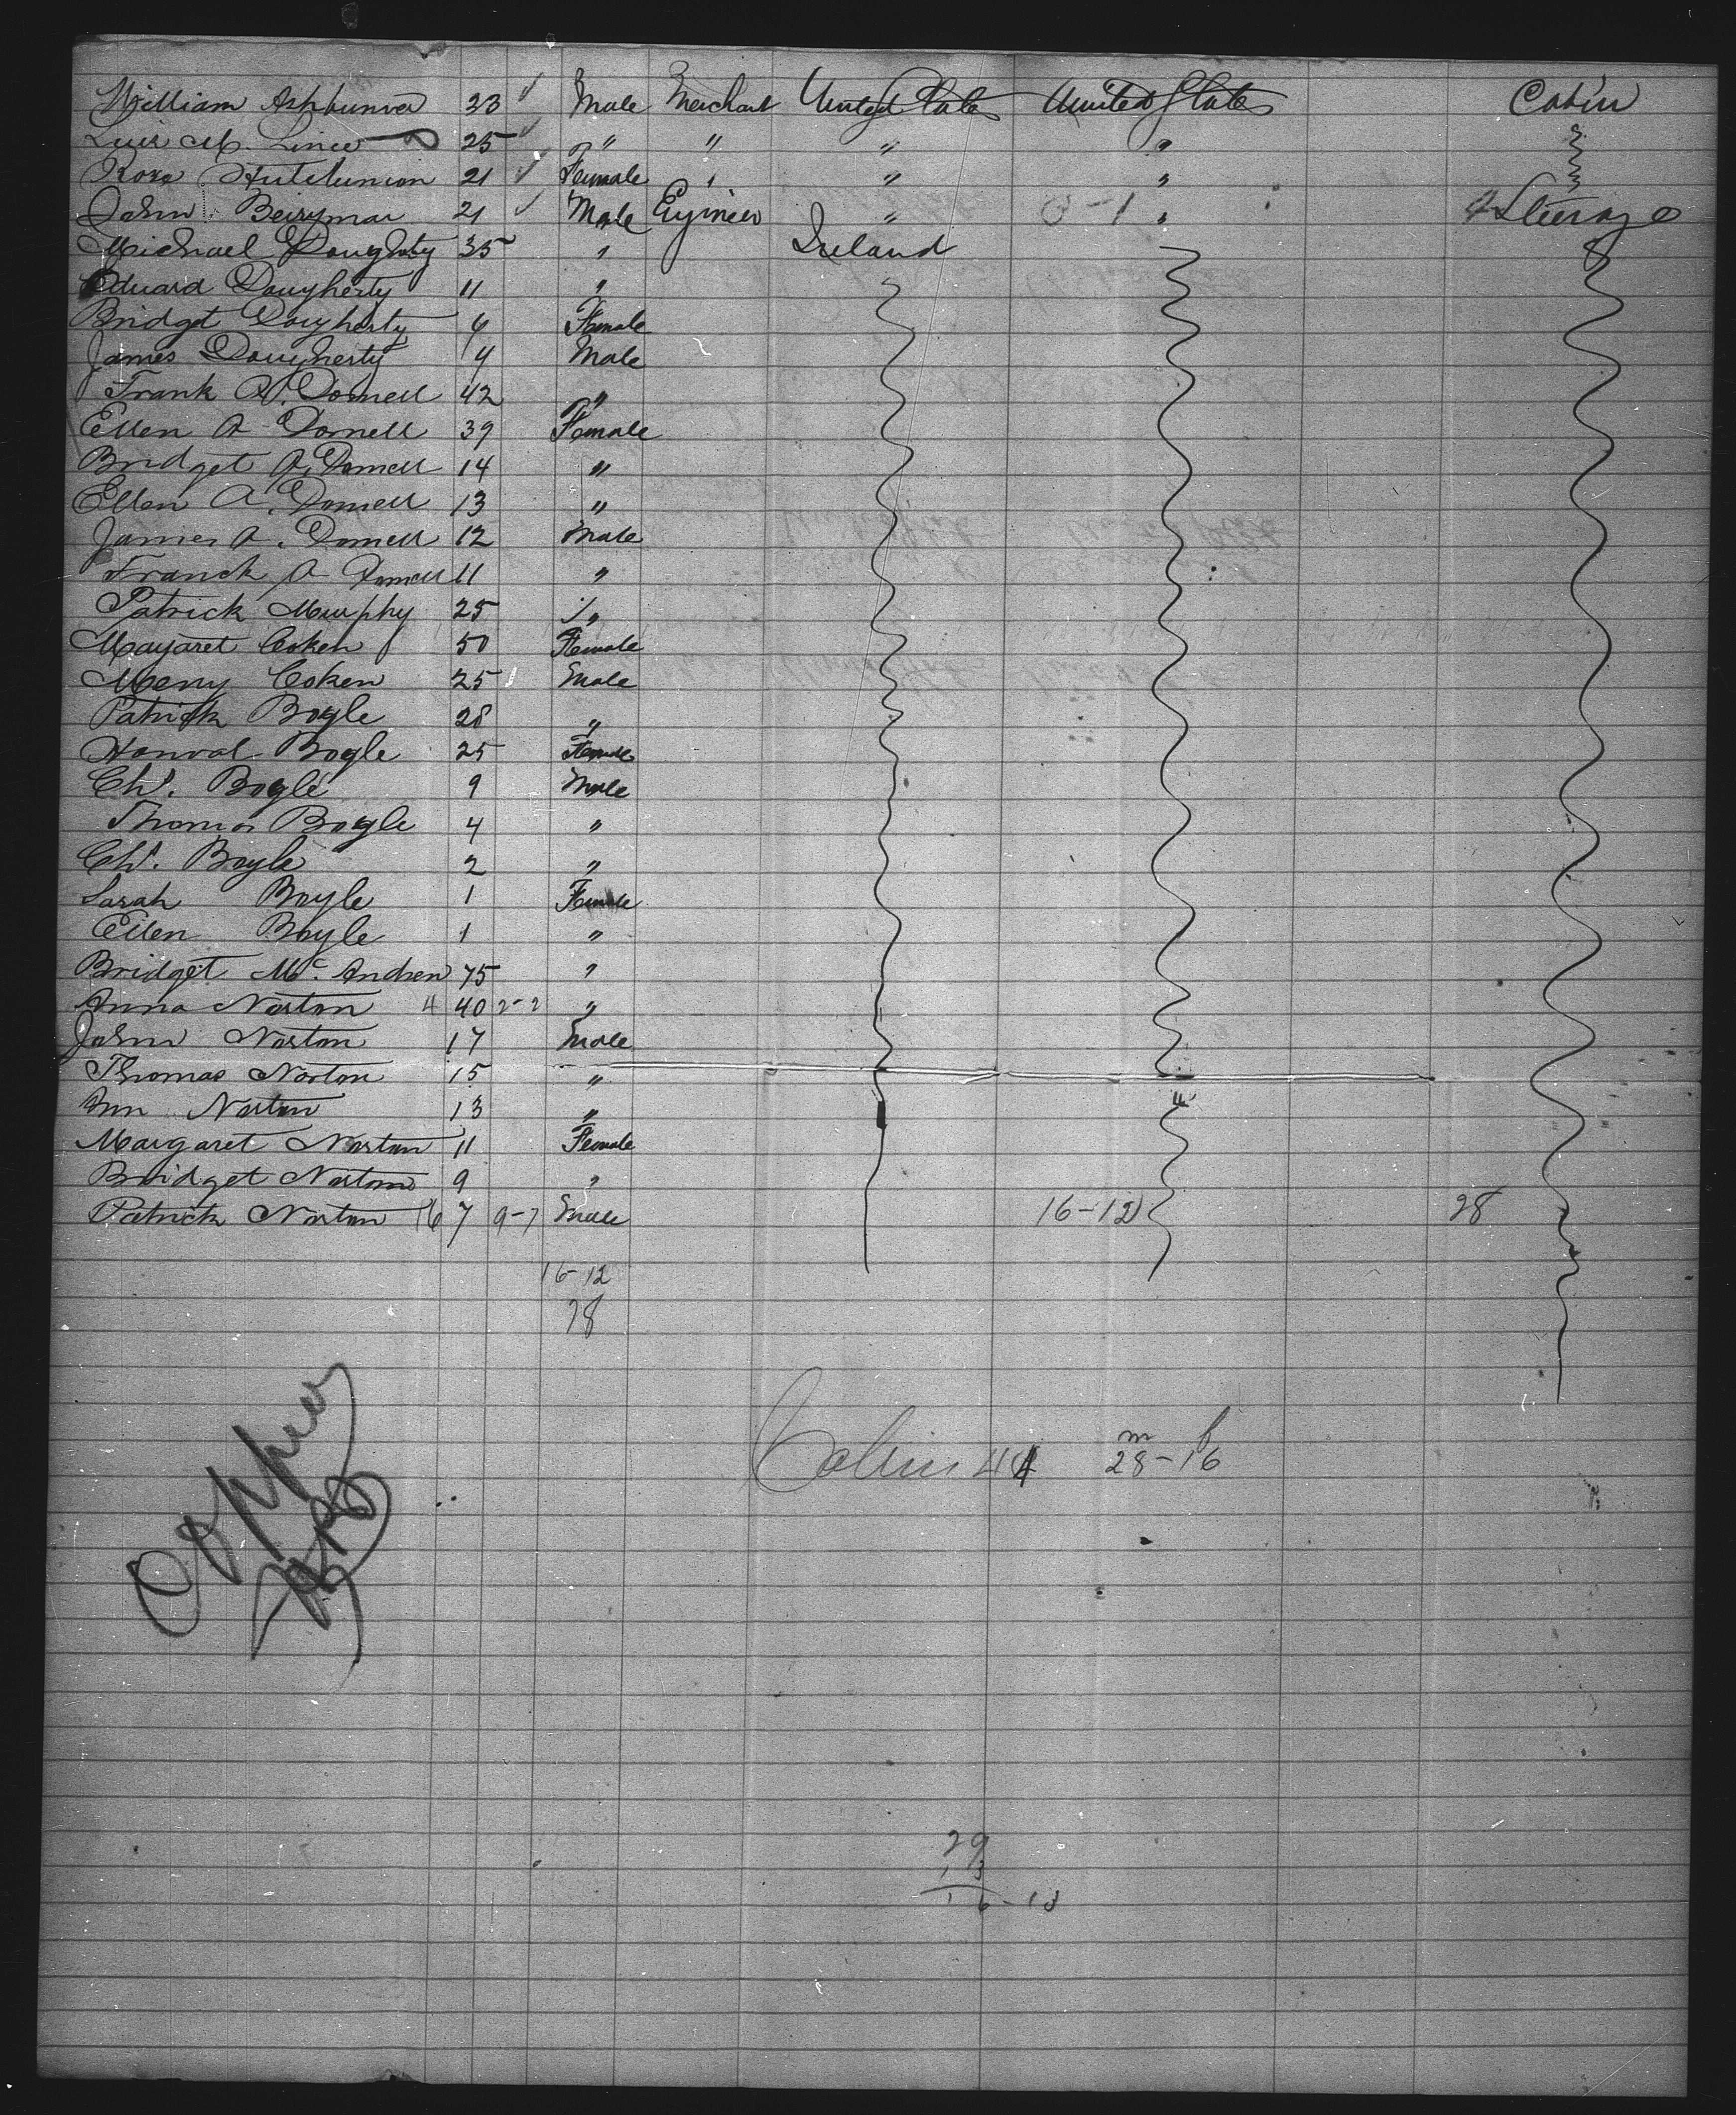 William Ashbunner 33 Male Merchant United States United States Cabin
Luis M. 25 " " " "
Rosa Hutchinson 21 Female " " "
John Berryman 21 Male Engineer " 3-1 " 4 Steerage
Michael Dougherty 35 " Ireland
Eduard Dougherty 11 "
Bridget Dougherty 6 Female
James Dougherty 4 Male
Frank O. Donnell 42 "
Ellen O Donnell 39 Female
Bridget O. Donnell 14 "
Ellen O. Donnell 13 "
James O. Donnell 12 Male
Franck O Donnell 11 "
Patrick Murphy 25 "
Margaret Coken 50 Female
Meny Coken 25 Male
Patrick Bogle 28 "
Bogle 25 Female
Chs. Bogle 9 Male
Thomas Bogle 4 "
Chs. Boyle 2 "
Sarah Boyle 1 Female
Ellen Boyle 1 "
Bridget Mc. Andrew 75 "
Anna Norton 4 40 2-2 "
John Norton 17 Male
Thomas Norton 15 "
Ann Norton 13 "
Margaret Norton 11 Female
Bridget Norton 9 "
Patrick Norton 16 7 9-7 Male 16-12 28
16-12
28
Cabin 44 m 28 - f 16
29
13
16-13